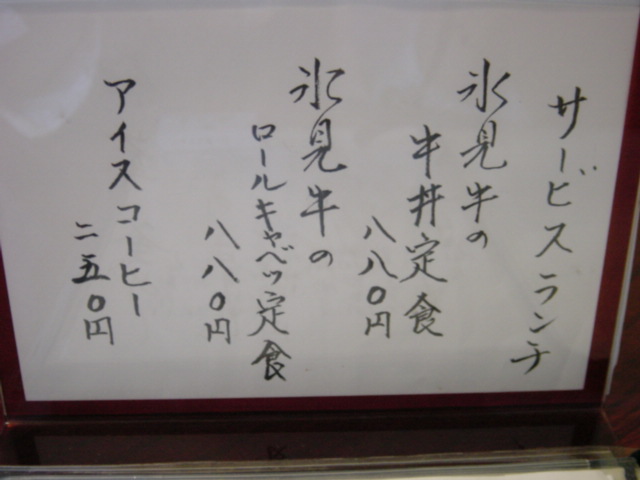 サービスランチ
氷見牛の
牛丼定食
八八〇円
氷見牛の
ロールキャベツ定食
八八〇円
アイスコーヒー
二五〇円